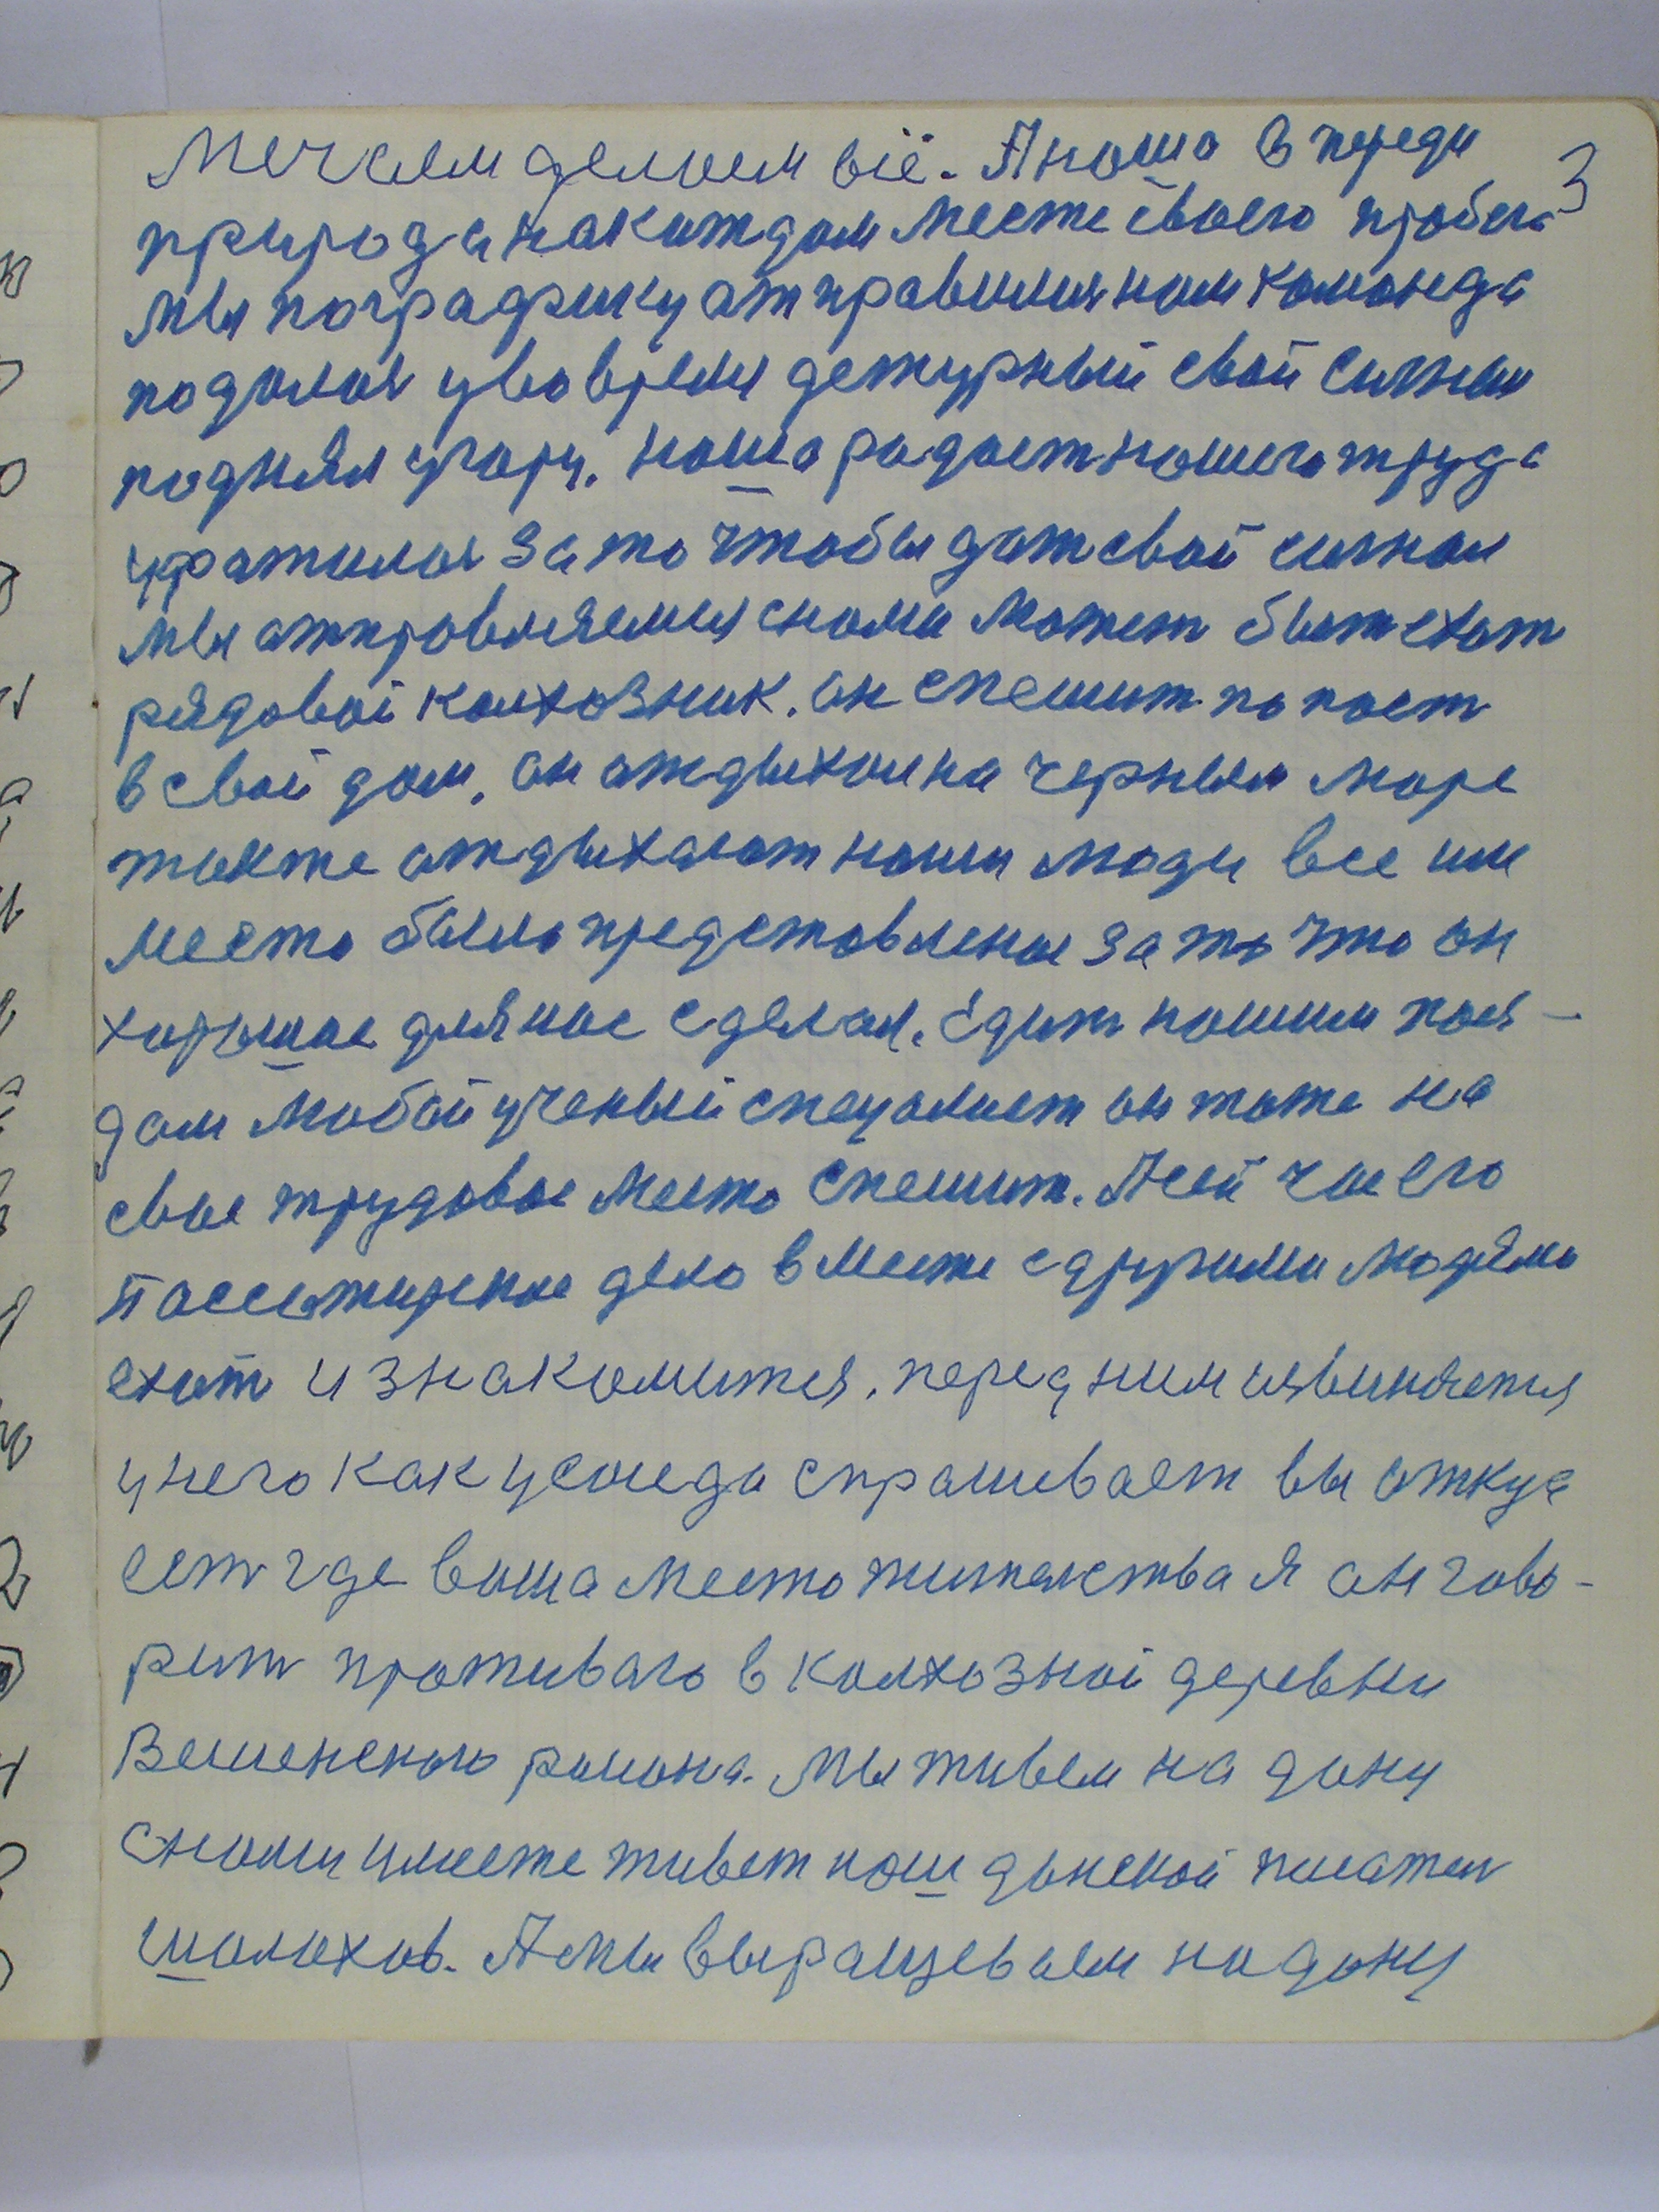 мечаем делаем всё. А наша в переди 3
природа на каждом месте своего пробега
мы по графику атправились нам команда
подалась уво время дежурный свой сигнал
поднял угару. наша радаст нашего труда
ухватилас за то чтобы дат свой сигнал
мы атправляемся снами можем быт ехат
рядовой колхозник. он спешит попаст
в свой дом. он атдыхал на черным море
также атдыхают наши люди все им
место было представленое за то что он
хорошое для нас сделал. Едит нашим поез-
дам любой ученый спецалист он тоже на
свое трудовое место спешит. Асей час его
Пассажирное дело в месте с другими людями
ехат и знакомится. перед ним извиняется
у него как у соседа спрашивает вы откуда
ест где ваша место жительства я он гово-
рит проживаю в колхозной деревни
Вешенского раиона. мы живем на дону
снами имеете живет наш донской писател
шолохов. А мы выращеваем на дону